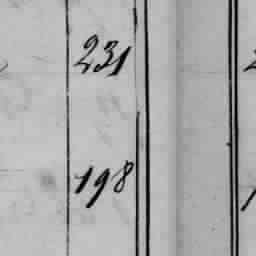 231
198